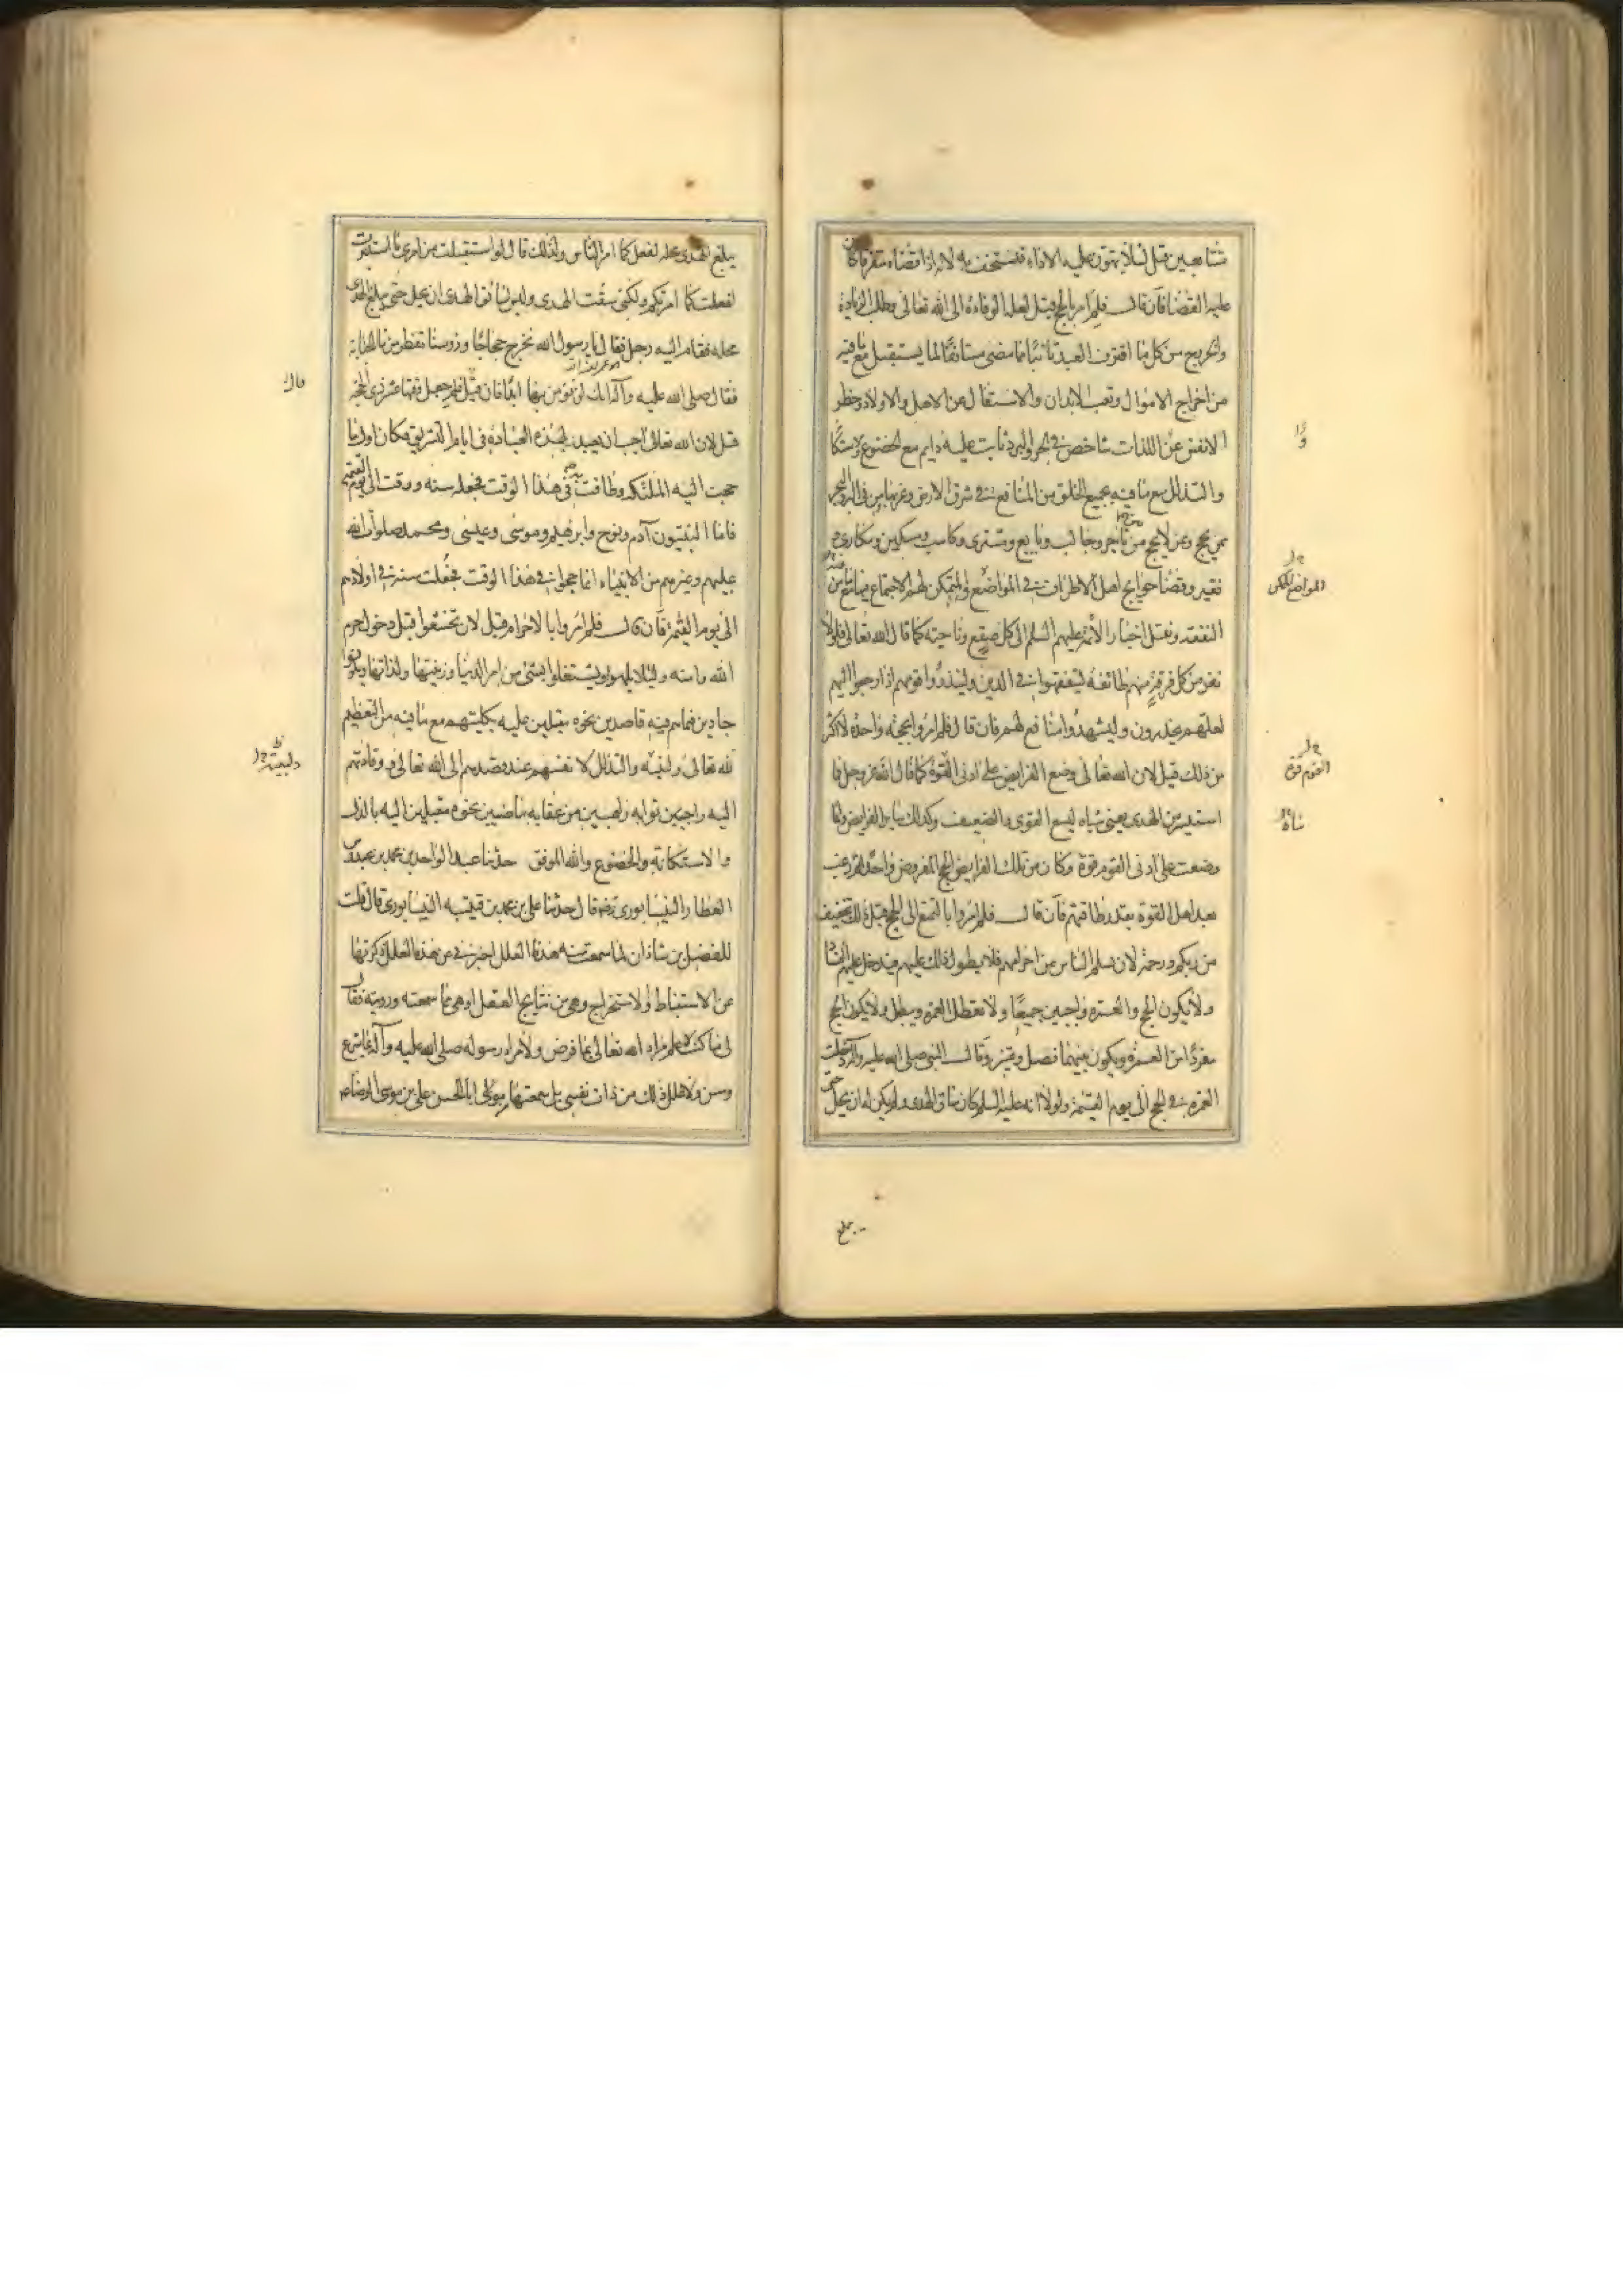 متتابعين قيل لئلا يهون عليه الاداء فيستخف به لانه اذا قضاه متفرقا كان
عليه القضا فان قال فلم امر بالحج قيل لعلة الوفادة الى الله تعالى وطلب الزيادة
والخروج من كل ما اقترف العبد تائبا مما مضى مستانفا لما يستقبل مع ما فيه
من اخراج الاموال وتعب الابدان والاشتغال عن الاهل والاولاد وحظر
الانفس عن اللذات شاخص في الحر والبرد ثابت عليه دايم مع الخضوع والاستكا
والتذلل مع ما فيه لجميع الخلق من المنافع في شرق الارض وغربها ومن في البر والبحر
ممن يحج وممن لا يحج من تاجر وجالب وبايع ومشتري وكاسب ومسكين ومكاري و
فقير وقضا حوايج اهل الاطراف في المواضع الممكن لهم الاجتماع فيها مع ما فيه من
التفقه ونقل اخبار الائمة عليهم السلم الى كل صقع وناحيته كما قال الله تعالى فلولا
نفر من كل فرقة منهم طائفة ليتفقهوا في الدين ولينذروا قومهم اذا رجعوا اليهم
لعلهم يحذرون وليشهدوا منافع لهم فان قال فلم امروا بحجة واحدة لا اكثر
من ذلك قيل لان الله تعالى وضع الفرايض على ادنى القوة كما قال الله عز وجل فما
استيسر من الهدى يعني شاه ليسع القوى والضعيف وكذلك ساير الفرايض انما
وضعت على ادنى القوم قوة وكان من تلك الفرايض الحج المفروض واحدا ثم رغب
بعد اهل القوة بقدر طاقتهم فان قال فلم امروا بالتمتع الى الحج قيل ذلك تخفيف
من ربكم ورحمة لان يسلم الناس من احرامهم فلا يطول ذلك عليهم فيدخل عليهم الفسا
ولا يكون الحج والعمرة واجبين جميعا ولا تعطل العمرة ويبطل ولا يكون الحج
مفردا من العمرة ويكون بينهما فصل وتميز وقال النبي صلى الله عليه وآله دخلت
العمرة في الحج الى يوم القيمة ولولا انه عليه السلم كان ساق الهدى ولم يكن له ان يحل حتى
المواضع الممكن
القوم قوة
شاة
يبلغ
يبلغ الهدى محله لفعل كما امر الناس ولذلك قال لو استقبلت من امري ما استدبرت
لفعلت كما امرتكم ولكني سقت الهدى وليس لسائق الهدى ان يحل حتى يبلغ الهدى
محله فقام اليه رجل فقال يا رسول الله نخرج حجاجا ورؤسنا تقطر من ماء الجنابة
فقال صلى الله عليه وآله انك لن تؤمن بهذا ابدا فان قيل فلم جعل وقتها عشر ذي الحجة
قيل لان الله تعالى احب ان يعبد بهذه العبادة في ايام التشريق وكان اول ما
حجت اليه الملئكة وطافت به في هذا الوقت فجعله سنة ووقت الى يوم القيمة
فاما النبيون آدم ونوح وابرهيم وموسى وعيسى ومحمد صلوات الله
عليهم وغيرهم من الانبياء انما حجوا في هذا الوقت فجعلت سنة في اولادهم
الى يوم القيمة فان قال فلم امروا بالاحرام قيل لان تخشعوا قبل دخول حرم
الله وامنه ولئلا يلهوا ويشتغلوا بشئ من امر الدنيا وزينتها ولذاتها ويكونوا
جادين فيما هم فيه قاصدين نحوه مقبلين عليه بكليتهم مع ما فيه من التعظيم
لله تعالى ولنبيه والتذلل لانفسهم عند قصدهم الى الله تعالى ووفادتهم
اليه راجين ثوابه راهبين من عقابه ماضين نحوه مقبلين اليه بالذل
والاستكانة والخضوع والله الموفق حدثنا عبد الواحد بن محمد بن عبدوس
العطار النيسابوري رضه قال حدثنا علي بن محمد بن قتيبه النيسابوري قال قلت
للفضل بن شاذان لما سمعت منه هذه العلل اخبرني من هذه العلل ذكرتها
عن الاستنباط والاستخراج وهي من نتايج العقل او هي مما سمعته ورويته فقال
لي ما كنت لاعلم مراد الله تعالى بما فرض ولا مراد رسوله صلى الله عليه وآله بما شرع
وسن ولا اعلل ذلك من ذات نفسي بل سمعتها من مولاي ابا الحسن علي بن موسى الرضا ع
قال
ولبيته